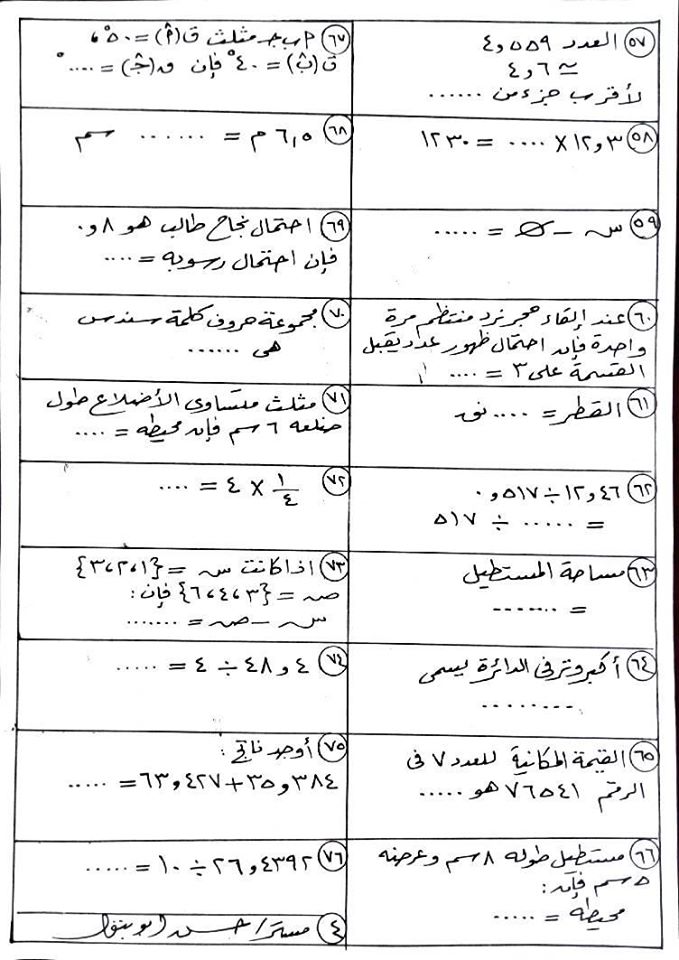 ٥٧ العدد ٥٥٩ و٤
≃ ٦ و ٤
لأقرب جزء من ......
٥٨ ٣ و١٢ × .... = ١٢٣٠
٥٩ س - ∅ = .....
٦٠ عند إلقاء حجر نرد منتظم مرة
واحدة فإن احتمال ظهور عدد يقبل
القسمة على ٣ = ....
٦١ القطر = .... نق
٦٢ ٤٦ و١٢ ÷ ٥١٧ و ٠
= ...... ÷ ٥١٧
٦٣ مساحة المستطيل
= .......
٦٤ أكبر وتر فى الدائرة يسمى
.........
٦٥ القيمة المكانية للعدد ٧ فى
الرقم ٧٦٥٤١ هو .....
٦٦ مستطيل طوله ٨ سم وعرضه
٥ سم فإن :
محيطه = .....
٦٧ ٩ ب جـ مثلث ق(٩̂) = ٥٠° ،
ق(ب̂) = ٤٠° فإن ق(جـ̂) = ....°
٦٨ ٦,٥ م = ....... سم
٦٩ احتمال نجاح طالب هو ٨ و٠
فإن احتمال رسوبه = ....
٧٠ مجموعة حروف كلمة سندس
هى ......
٧١ مثلث متساوى الأضلاع طول
ضلعه ٦ سم فإن محيطه = ....
٧٢ ١/٤ × ٤ = ....
٧٣ اذا كانت س = {١،٢،٣}
صـ = {٣،٤،٦} فإن :
س - صـ = .......
٧٤ ٤ و ٤٨ ÷ ٤ = .....
٧٥ أوجد ناتج :
٣٨٤ و٣٥ + ٤٢٧ و٦٣ = .....
٧٦ ٤٣٩٢ و٢٦ ÷ ١٠ = .....
٤ مستر / حسن